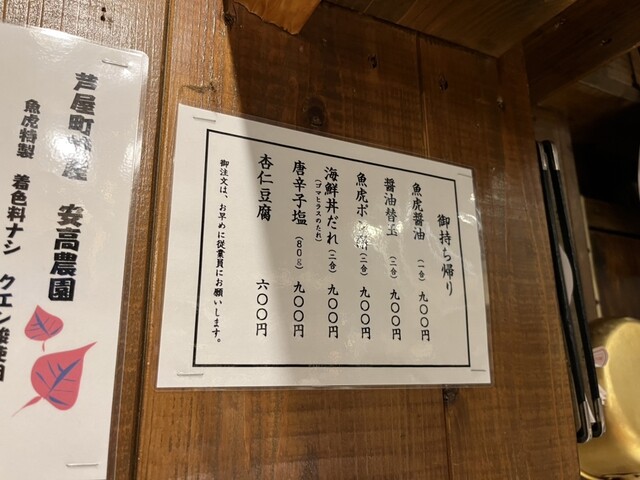 御持ち帰り
魚虎醤油 (一合) 九〇〇円
醤油替玉 (二合) 九〇〇円
魚虎ポン酢 (二合) 九〇〇円
海鮮丼だれ (二合) 九〇〇円
(ゴマヒラスのたれ)
唐辛子塩 (80g) 九〇〇円
杏仁豆腐 六〇〇円
御注文は、お早めに従業員にお願いします。
芦屋町 安高農園
魚虎特製 着色料ナシ クエン酸使用